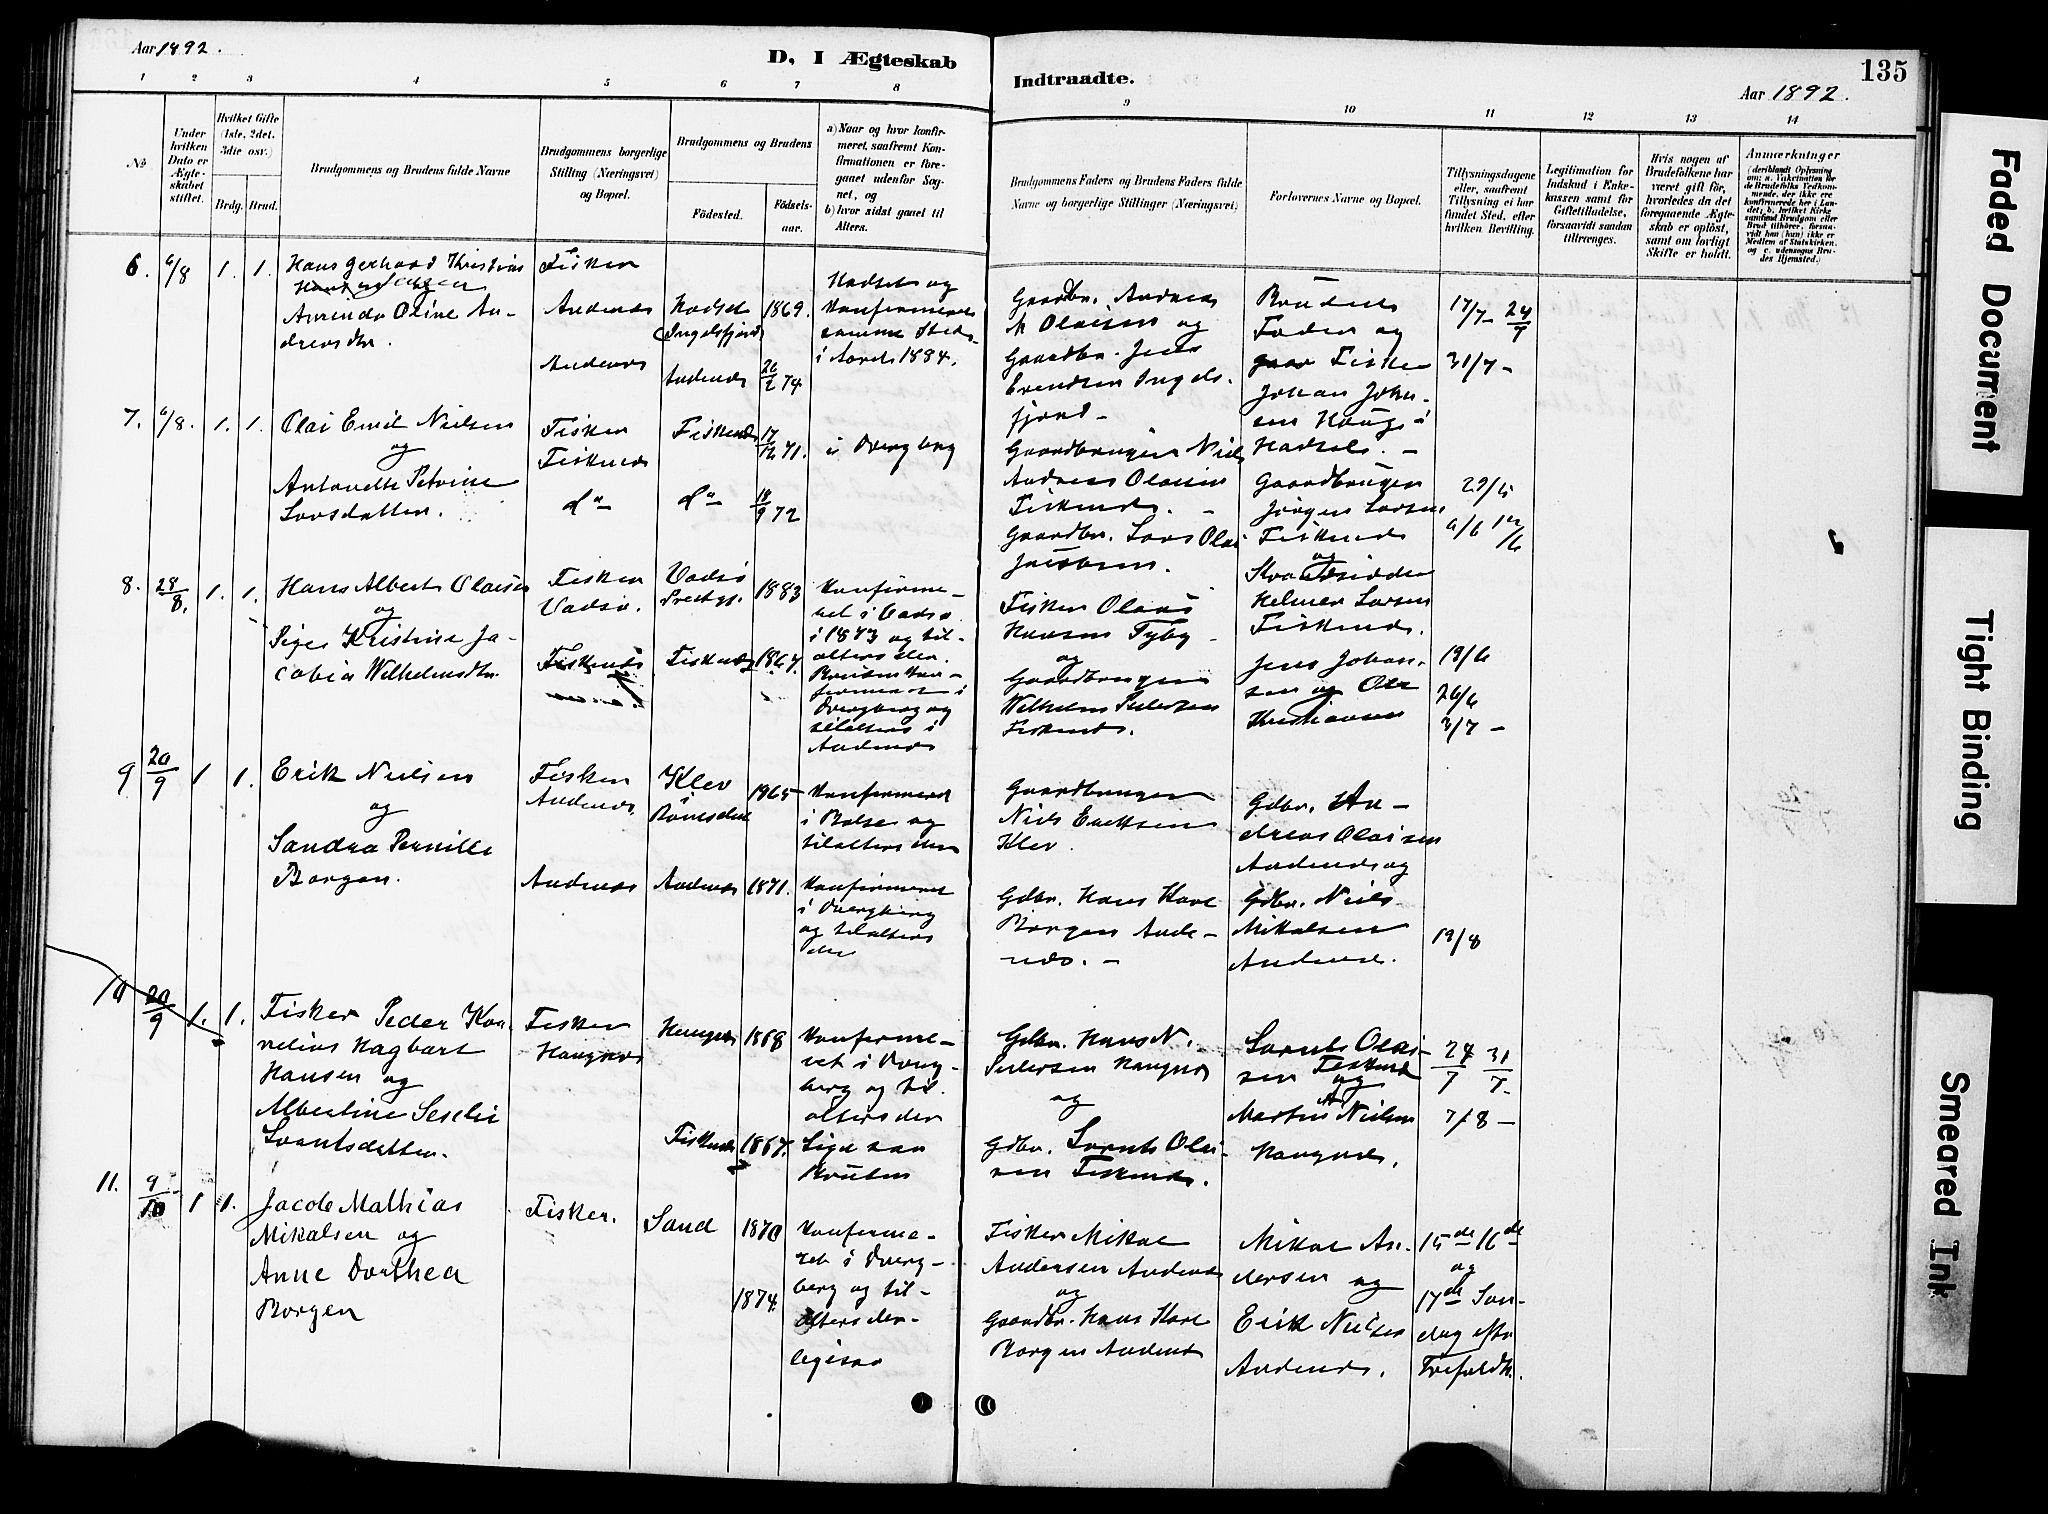 Aar 1892.
D, I Ægteskab
Indtraadte.
Aar 1892.
135
1 2 3 4 5 6 7 8
9 10 11 12 13 14
No
Under
hvilken
Dato er
Ægte-
skabet
stiftet.
Hvilket Gifte
(1ste, 2det,
3die osv.)
Brdg.
Brud.
Brudgommens og Brudens fulde Navne
Brudgommens borgerlige
Stilling (Næringsvei)
og Bopæl.
Brudgommens og Brudens
Fødested.
Fødsels-
aar.
a) Naar og hvor konfir-
meret, saafremt Kon-
firmationen er fore-
gaaet udenfor Sog-
net, og
b) hvor sidst gaaet til
Alters.
Brudgommens Faders og Brudens Faders fulde
Navne og borgerlige Stillinger (Næringsvei)
Forlovernes Navne og Bopæl.
Tillysningsdagene
eller, saafremt
Tillysning ei har
fundet Sted, efter
hvilken Bevilling.
Legitimation for
Indskud i Enke-
kassen samt for
Giftetilladelse,
forsaavidt saadan
tiltrænges.
Hvis nogen af
Brudefolkene har
været gift før,
hvorledes da det
foregaaende Ægte-
skab er opløst,
samt om lovligt
Skifte er holdt.
Anmærkninger
(deriblandt Oplysning
om: a. Vakcination for
de Brudefolks Vedkom-
mende, der ikke ere
konfirmerede her i Lan-
det; b. hvilket Kirke-
samfund Brudgom eller
Brud tilhører, forsaa-
vidt han (hun) ikke er
Medlem af Statskirken,
og c. udensogns Bru-
des Hjemsted.)
6. 6/8 1. 1.
Hans Gerhard Kristius
Jensen
Oline An-
dreasdtr.
Fisker
Andenes
Andenes
Hadsel
Ingelsfjord
1869.
Andenes
20/2 74
Hadsel og
Konfirmeret
samme Sted
i Aaret 1884.
Gaardbr. Andreas
M Olaisen og
Gaardbr. Jens
Evendsen Ingels-
fjord -
Brudens
Fader og
Fisker
Johan John-
sen Haugs i
Hadsel. -
17/7 - 24/7
31/7 -
7. 6/8. 1. 1.
Olai Emil Nielsen
og
Antonette Petrine
Larsdatter.
Fisker
Fiskenes
do
Fiskenes
17/12 71.
do
18/9 72
i Dverberg
Gaardbruger Niels
Andreas Olaisen
Fiskenes. -
Gaardbr. Lars Olai
Jacobsen.
Gaardbruger
Jørgen Larsen
Fiskenes
og
Helmer Larsen
Fiskenes.
29/5
6/6 12/6
8. 28/8. 1. 1.
Hans Albert Olaisen
og
Kristine Ja-
cobia Wilhelmsdtr.
Fisker
Vadsø.
Fiskenes
Vadsø
Prestgj.
1883
Fiskenes 1867.
Konfirme-
ret i Vadsø
i 1873 og til-
alters der.
Bruden Kon-
firmeret i
Dverberg og
tilalters i
Andenes
Fisker Olaus
Hansen Tyby -
og
Gaardbruger
Wilhelm Pedersen
Fiskenes.
Jens Johan-
sen og Ole
Kristiansen
19/6
26/6
3/7 -
9 20/9 1 1.
Erik Nielsen
og
Sandra Pernille
Borgen.
Fisker
Andenes.
Andenes
Klev
i
Romsdal
1965
Andenes 1871.
Konfirmeret
i Bolsø og
tilalters der
Konfirmeret
i Dverberg
og tilalters
der
Gaardbruger
Niels Eriksen
Klev.
Gdbr. Hans Karl
Borgen Ande-
næs. -
Gdbr. An-
dreas Olaisen
Andenes og
Gdbr. Niels
Mikalsen
Andenes.
19/8
10 20/9 1. 1.
Fisker Peder Kor-
nelius Hagbart
Hansen og
Albertine Seselie
Lorntsdatter.
Fisker
Haugnes
Haugnes 1868
Fiskenes 1867.
Konfirme-
ret i Dverg-
berg og til-
alters der
Lige saa
Bruden
Gdbr. Hans N.
Pedersen Haugnes
og
Gdbr. Lornts Olai-
sen Fiskenes.
Lornts Olai-
sen Fiskenes
og
Martin Nielsen
Haugnes.
24/7 31/7.
7/8 -
11. 9/10 1 1.
Jacob Mathias
Mikalsen og
Anne Dorthea
Borgen
Fisker.
Sand 1870
1874.
Konfirme-
ret i Dverg-
berg og til-
alters der-
ligesaa
Fisker Mikal
Andersen Andenes
og
Gaardbr. Hans Karl
Borgen Andenes
Mikal An-
dersen og
Erik Nielsen
Andenes.
15de 16de
og
17de Søn-
dag eftr
Trefoldh.
Faded Document
Tight Binding
Smeared Ink